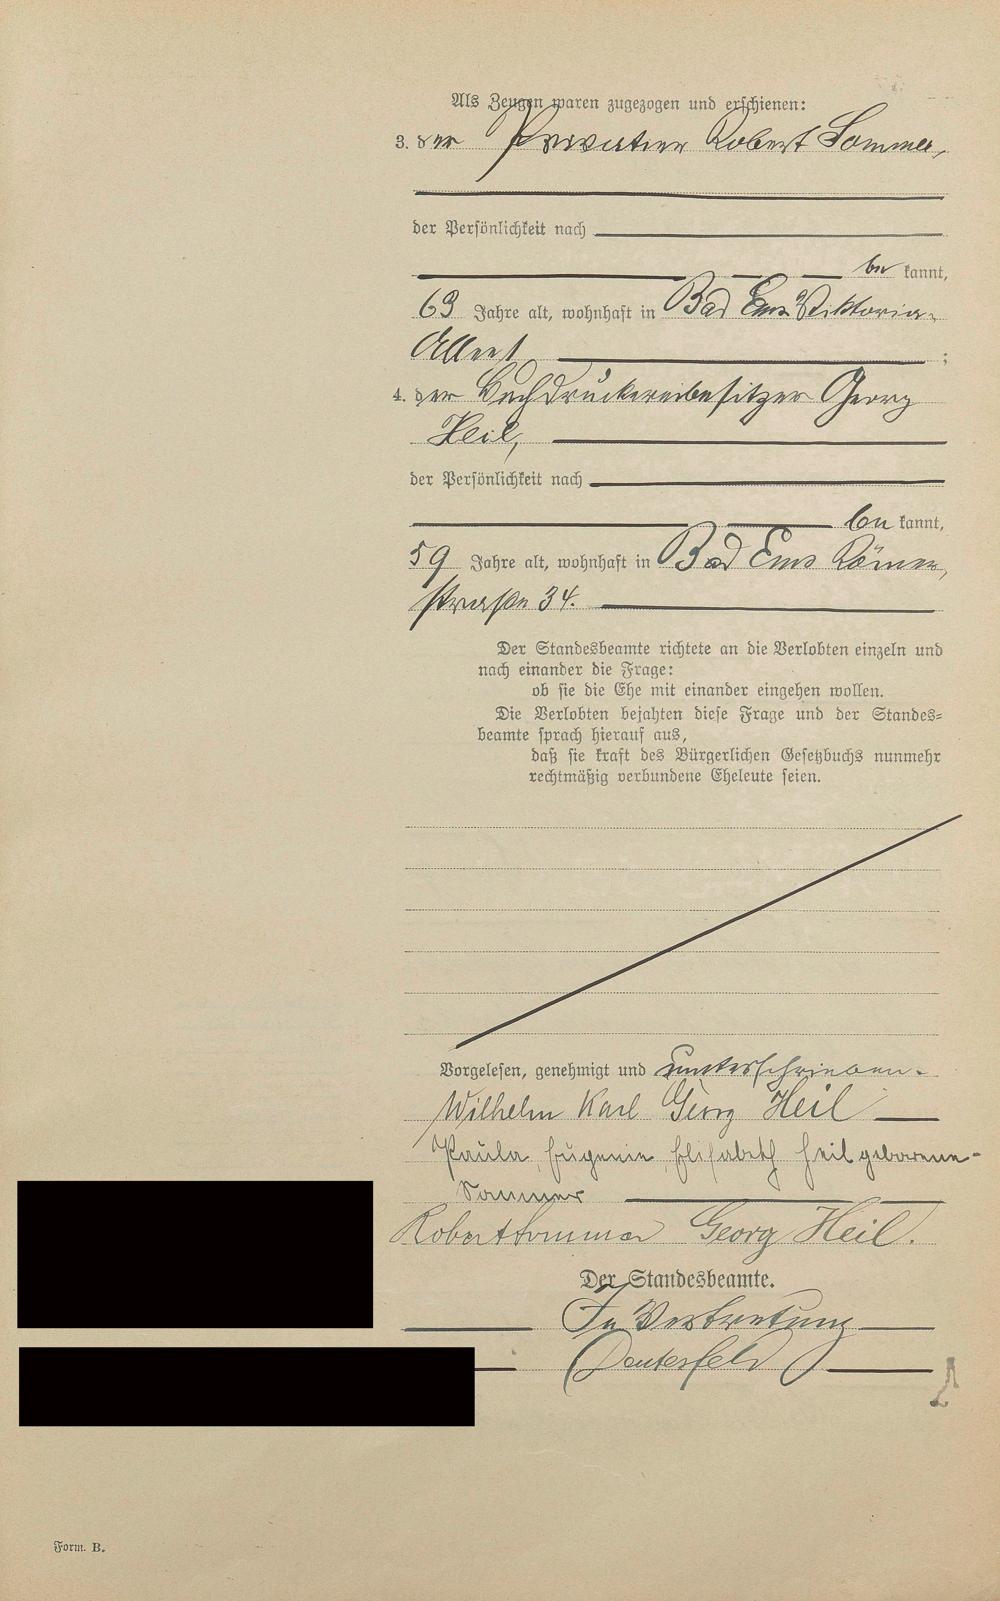 Als Zeugen waren zugezogen und erschienen:
3. der Privatier Robert Sommer,
der Persönlichkeit nach
be kannt,
63 Jahre alt, wohnhaft in Bad Ems Viktoria-
Allee 1 ;
4. der Buchdruckereibesitzer Georg
Heil,
der Persönlichkeit nach
be kannt,
59 Jahre alt, wohnhaft in Bad Ems Römer,
straße 34.
Der Standesbeamte richtete an die Verlobten einzeln und
nach einander die Frage:
ob sie die Ehe mit einander eingehen wollen.
Die Verlobten bejahten diese Frage und der Standes=
beamte sprach hierauf aus,
daß sie kraft des Bürgerlichen Gesetzbuchs nunmehr
rechtmäßig verbundene Eheleute seien.
Vorgelesen, genehmigt und unterschrieben.
Wilhelm Karl Georg Heil
Paula, Eugenie, Elisabeth Heil geborene-
Sommer
Robert Sommer Georg Heil.
Der Standesbeamte.
In Vertretung
Form. B.